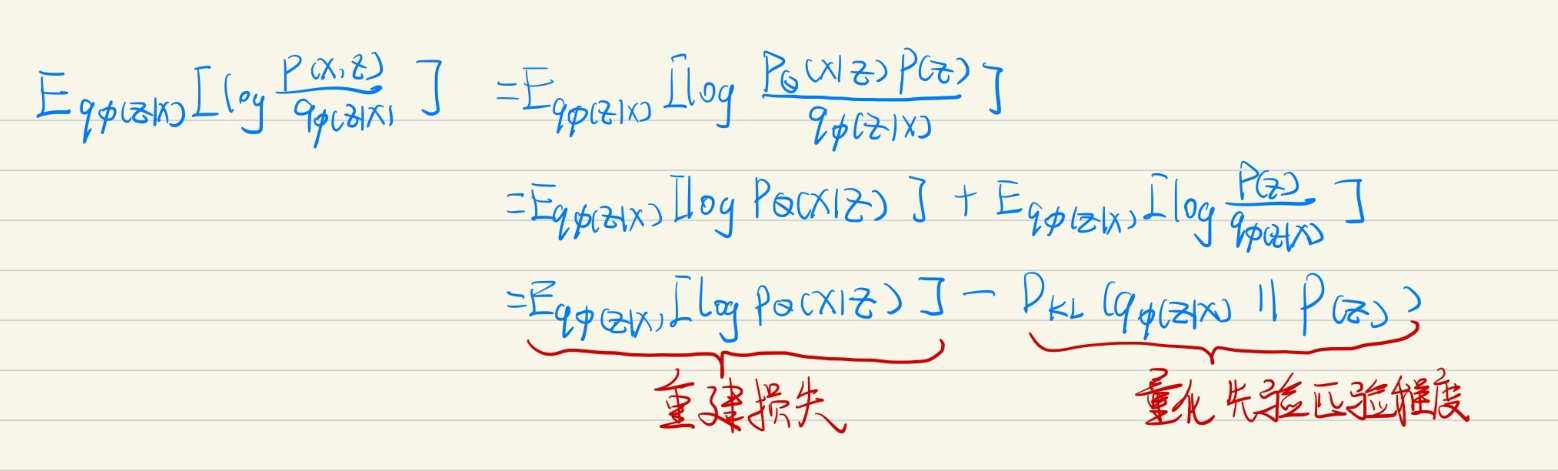 E_{qφ(z|x)} [log \frac{p(x,z)}{qφ(z|x)}] = E_{qφ(z|x)} [log \frac{pθ(x|z)p(z)}{qφ(z|x)}]
= E_{qφ(z|x)} [log pθ(x|z)] + E_{qφ(z|x)} [log \frac{p(z)}{qφ(z|x)}]
= E_{qφ(z|x)} [log pθ(x|z)] - D_{KL} (qφ(z|x) || p(z))
重建损失 量化先验匹验程度